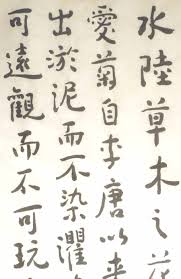 水陸草木之花
愛菊自李唐以来
出淤泥而不染濯
可遠觀而不可玩